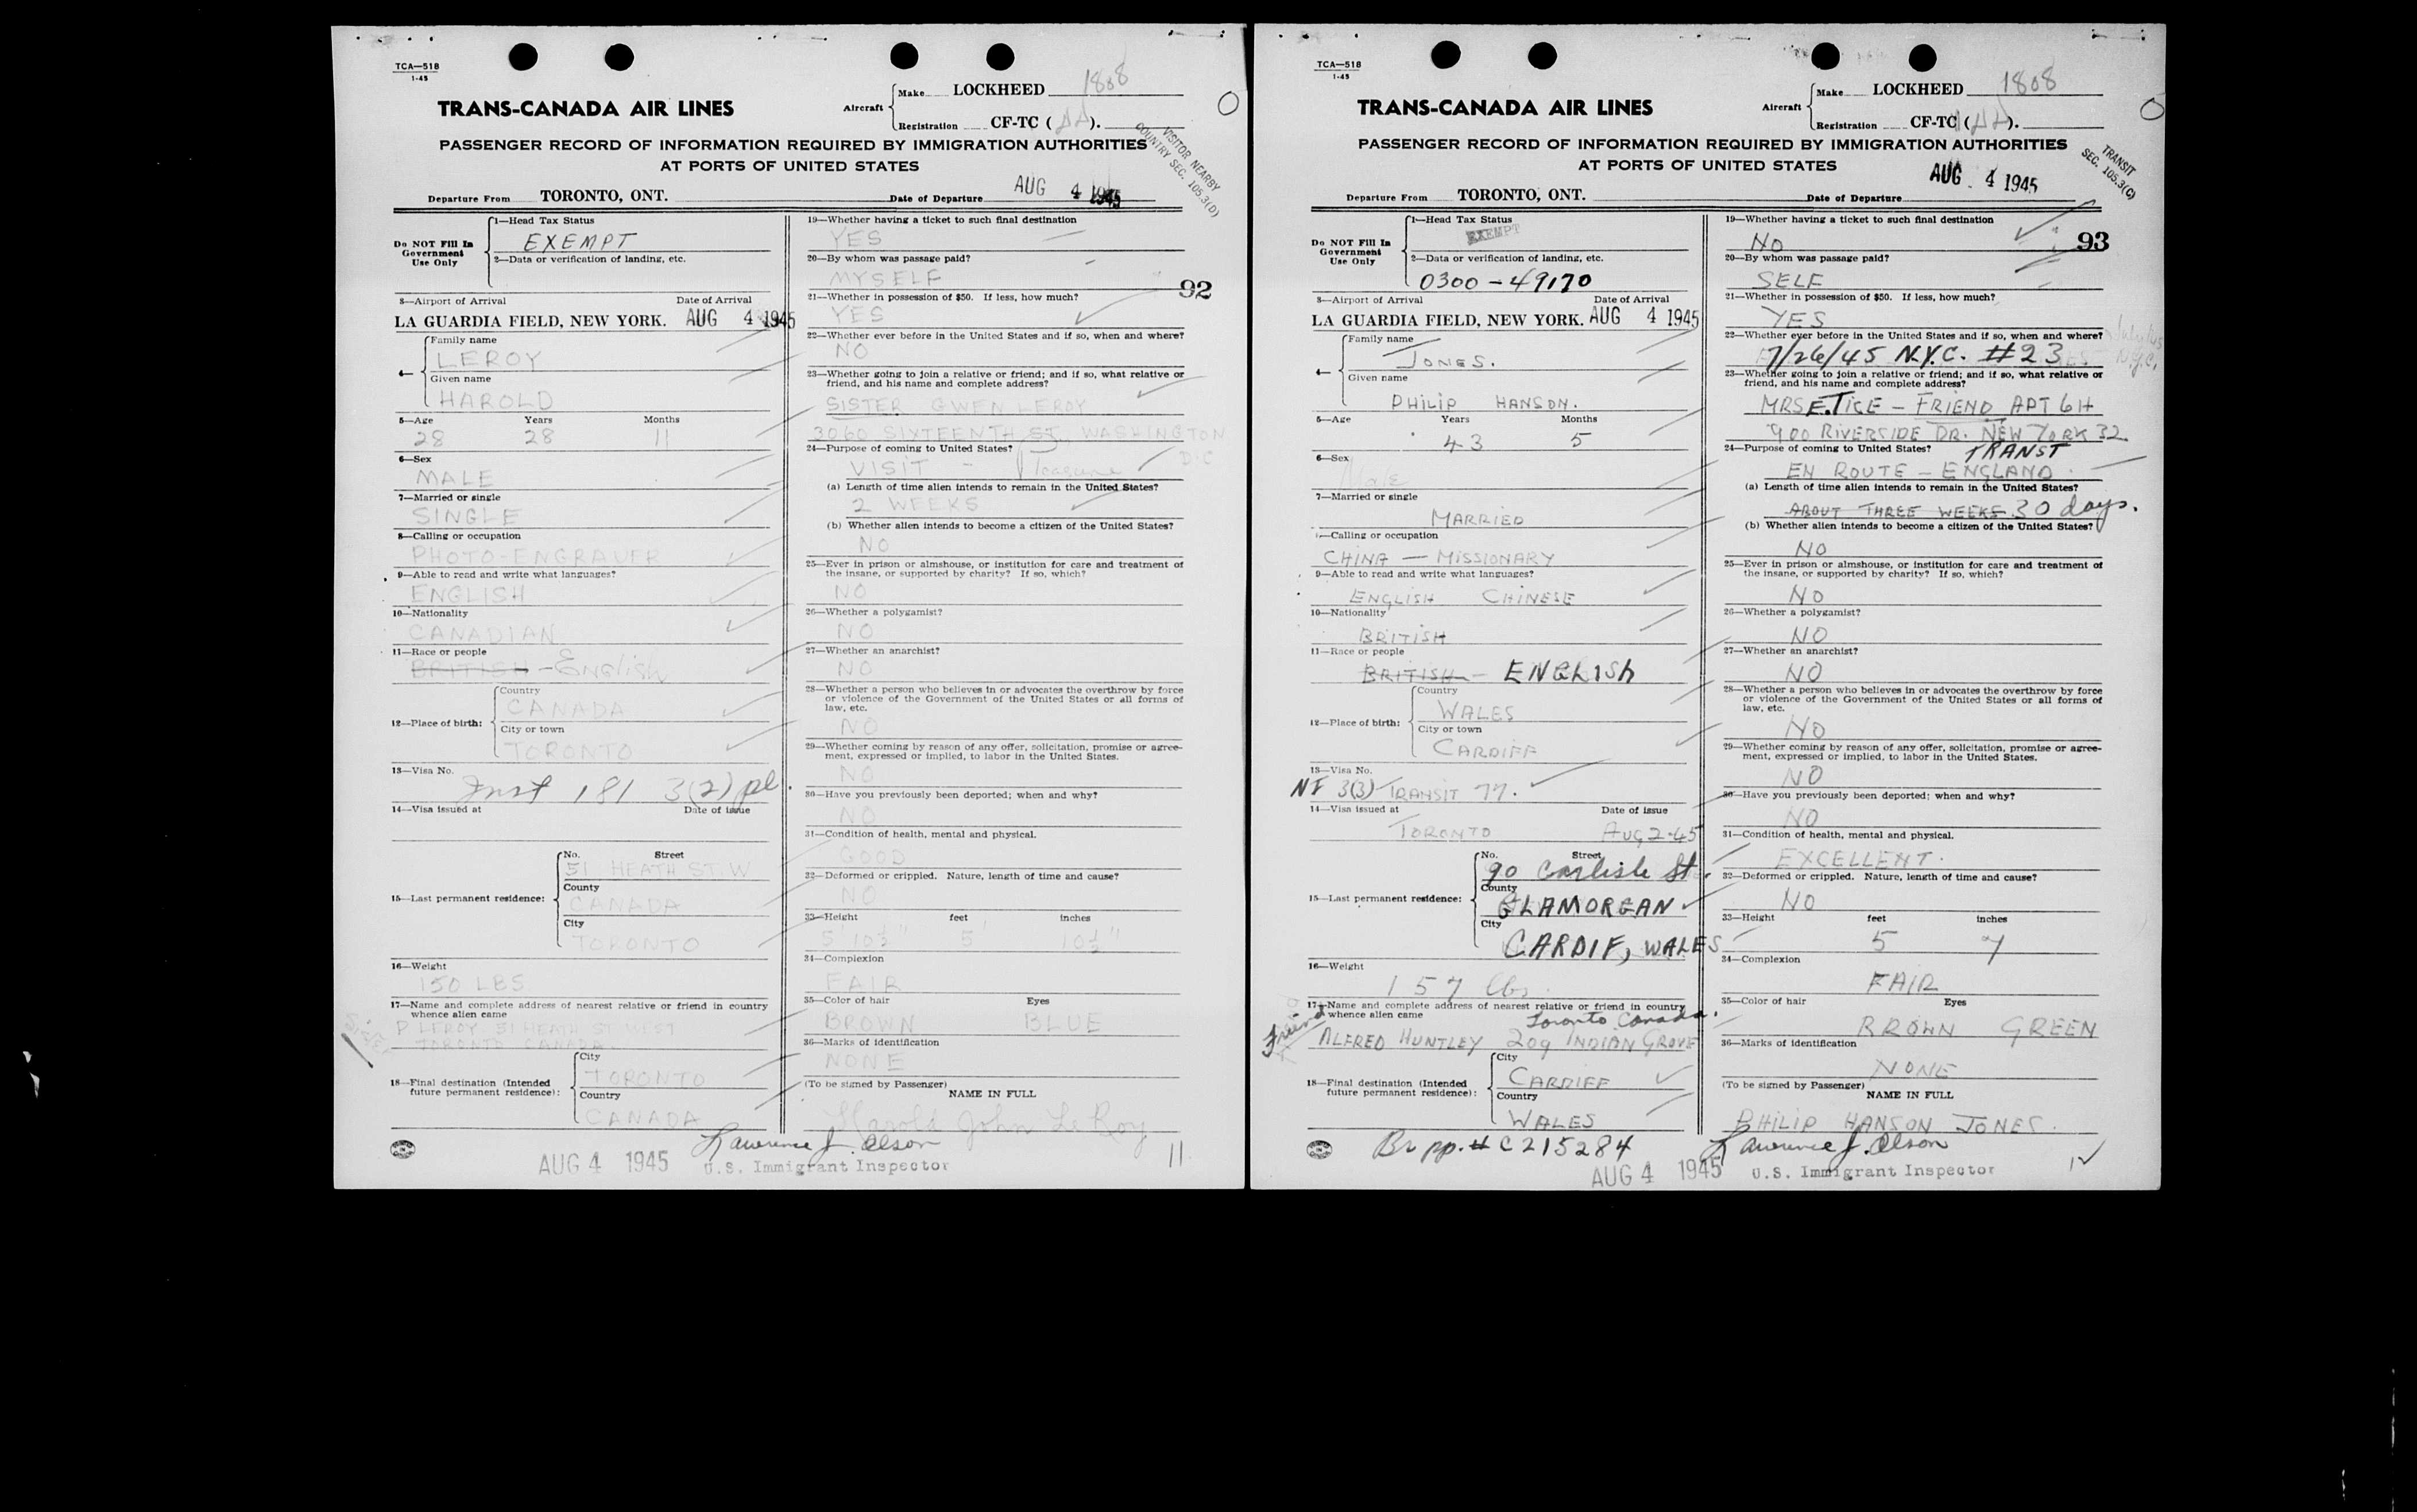 TCA—518
1-45
TRANS-CANADA AIR LINES
Aircraft
Make LOCKHEED 1808
Registration CF-TC ( AA ).
PASSENGER RECORD OF INFORMATION REQUIRED BY IMMIGRATION AUTHORITIES
AT PORTS OF UNITED STATES
VISITOR NEARBY
COUNTRY SEC. 105.3(D)
Departure From TORONTO, ONT. Date of Departure AUG 4 1945
Do NOT Fill In
Government
Use Only
1—Head Tax Status
EXEMPT
2—Data or verification of landing, etc.
3—Airport of Arrival Date of Arrival
LA GUARDIA FIELD, NEW YORK. AUG 4 1945
4—
Family name
LEROY
Given name
HAROLD
5—Age Years Months
28 28 11
6—Sex
MALE
7—Married or single
SINGLE
8—Calling or occupation
PHOTO-ENGRAVER
9—Able to read and write what languages?
ENGLISH
10—Nationality
CANADIAN
11—Race or people
BRITISH - English
12—Place of birth:
Country
CANADA
City or town
TORONTO
13—Visa No.
Inst 181 3(2) pl.
14—Visa issued at Date of issue
15—Last permanent residence:
No. Street
51 HEATH ST. W
County
CANADA
City
TORONTO
16—Weight
150 LBS
17—Name and complete address of nearest relative or friend in country
whence alien came
P LEROY 51 HEATH ST WEST
TORONTO CANADA.
18—Final destination (Intended
future permanent residence):
City
TORONTO
Country
CANADA
19—Whether having a ticket to such final destination
YES
20—By whom was passage paid?
MYSELF
92
21—Whether in possession of $50. If less, how much?
YES
22—Whether ever before in the United States and if so, when and where?
NO
23—Whether going to join a relative or friend; and if so, what relative or
friend, and his name and complete address?
SISTER GWEN LEROY
3060 SIXTEENTH ST. WASHINGTON
D.C
24—Purpose of coming to United States?
VISIT - Pleasure
(a) Length of time alien intends to remain in the United States?
2 WEEKS
(b) Whether alien intends to become a citizen of the United States?
NO
25—Ever in prison or almshouse, or institution for care and treatment of
the insane, or supported by charity? If so, which?
NO
26—Whether a polygamist?
NO
27—Whether an anarchist?
NO
28—Whether a person who believes in or advocates the overthrow by force
or violence of the Government of the United States or all forms of
law, etc.
NO
29—Whether coming by reason of any offer, solicitation, promise or agree-
ment, expressed or implied, to labor in the United States.
NO
30—Have you previously been deported; when and why?
NO
31—Condition of health, mental and physical.
GOOD
32—Deformed or crippled. Nature, length of time and cause?
NO
33—Height feet inches
5' 10½" 5' 10½"
34—Complexion
FAIR
35—Color of hair Eyes
BROWN BLUE
36—Marks of identification
NONE
(To be signed by Passenger) NAME IN FULL
Harold John LeRoy
Lawrence J. Olson
AUG 4 1945 U.S. Immigrant Inspector
11
TCA—518
1-45
TRANS-CANADA AIR LINES
Aircraft
Make LOCKHEED 1808
Registration CF-TC ( AA ).
PASSENGER RECORD OF INFORMATION REQUIRED BY IMMIGRATION AUTHORITIES
AT PORTS OF UNITED STATES
TRANSIT
SEC. 105.3(C)
Departure From TORONTO, ONT. Date of Departure AUG. 4 1945
Do NOT Fill In
Government
Use Only
1—Head Tax Status
EXEMPT
2—Data or verification of landing, etc.
0300-49170
3—Airport of Arrival Date of Arrival
LA GUARDIA FIELD, NEW YORK. AUG 4 1945
4—
Family name
JONES.
Given name
PHILIP HANSON.
5—Age Years Months
43 5
6—Sex
Male
7—Married or single
MARRIED
8—Calling or occupation
CHINA — MISSIONARY
9—Able to read and write what languages?
ENGLISH CHINESE
10—Nationality
BRITISH
11—Race or people
BRITISH - ENGLISH
12—Place of birth:
Country
WALES
City or town
CARDIFF
13—Visa No.
NI 3(3) TRANSIT 77.
14—Visa issued at Date of issue
TORONTO Aug 2-45
15—Last permanent residence:
No. Street
90 Carlisle St.
County
GLAMORGAN
City
CARDIF, WALES
16—Weight
157 lbs.
17—Name and complete address of nearest relative or friend in country
whence alien came
Toronto Canada.
Friend
ALFRED HUNTLEY 209 INDIAN GROVE
18—Final destination (Intended
future permanent residence):
City
CARDIFF
Country
WALES
19—Whether having a ticket to such final destination
NO
93
20—By whom was passage paid?
SELF
21—Whether in possession of $50. If less, how much?
YES
22—Whether ever before in the United States and if so, when and where?
7/26/45 N.Y.C. #23
N.Y.C.
23—Whether going to join a relative or friend; and if so, what relative or
friend, and his name and complete address?
MRS E. TICE — FRIEND APT 6H
900 RIVERSIDE DR. NEW YORK 32
24—Purpose of coming to United States? TRANST
EN ROUTE — ENGLAND
(a) Length of time alien intends to remain in the United States?
ABOUT THREE WEEKS 30 days.
(b) Whether alien intends to become a citizen of the United States?
NO
25—Ever in prison or almshouse, or institution for care and treatment of
the insane, or supported by charity? If so, which?
NO
26—Whether a polygamist?
NO
27—Whether an anarchist?
NO
28—Whether a person who believes in or advocates the overthrow by force
or violence of the Government of the United States or all forms of
law, etc.
NO
29—Whether coming by reason of any offer, solicitation, promise or agree-
ment, expressed or implied, to labor in the United States.
NO
30—Have you previously been deported; when and why?
NO
31—Condition of health, mental and physical.
EXCELLENT.
32—Deformed or crippled. Nature, length of time and cause?
NO
33—Height feet inches
5 7
34—Complexion
FAIR
35—Color of hair Eyes
BROWN GREEN
36—Marks of identification
NONE
(To be signed by Passenger) NAME IN FULL
PHILIP HANSON JONES.
Br pp. # C215284
Lawrence J. Olson
AUG 4 1945 U.S. Immigrant Inspector